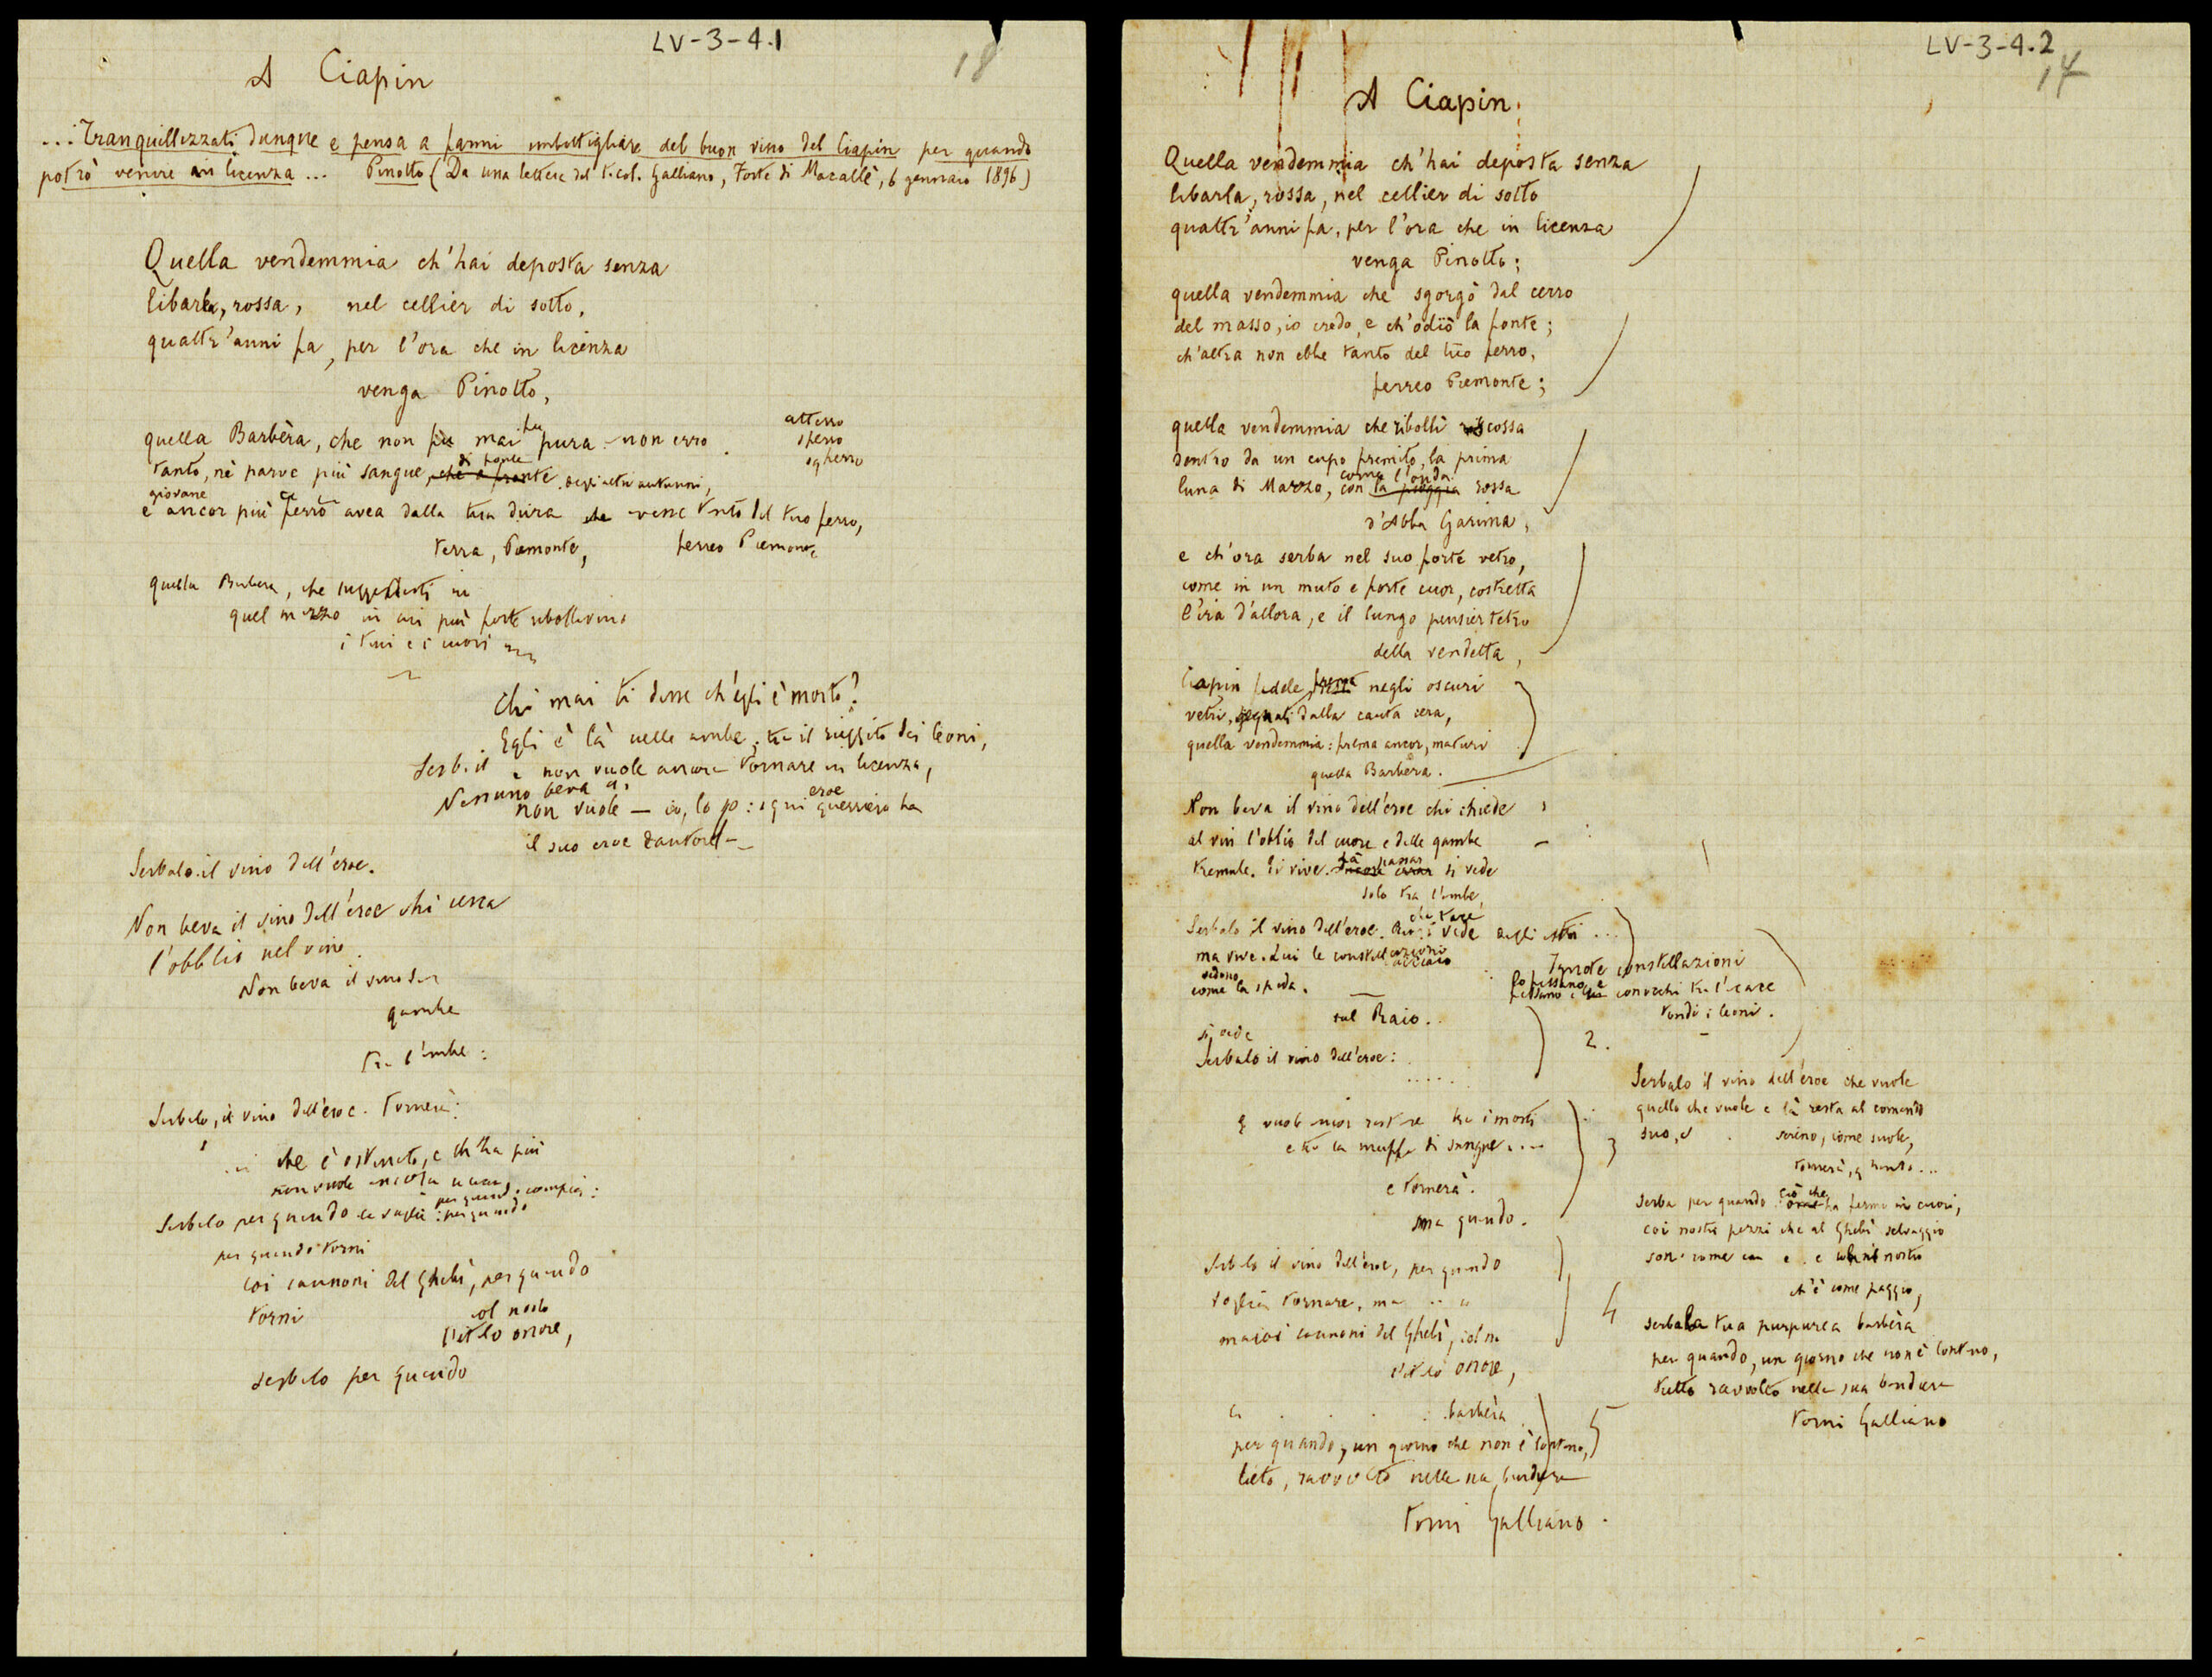 LV-3-4.1
18
A Ciapin
... Tranquillizzati dunque e pensa a farmi imbottigliare del buon vino del Ciapin per quando
potrò venire in licenza ... Pinotto (Da una lettera del t. col. Galliano, Forte di Macallè, 6 gennaio 1896)
Quella vendemmia ch'hai deposta senza
libarla, rossa, nel cellier di sotto,
quattr'anni fa, per l'ora che in licenza
venga Pinotto,
quella Barbèra, che non fu mai fu pura non erro
atterro
sferro
sgherro
tanto, nè parve più sangue, che a fronte di fonte degli altri autunni,
giovane
e ancor più ferro avea dalla tua dura che venne tanto del tuo ferro,
terra, Piemonte, ferreo Piemonte
quella Barbera, che
quel mezzo in cui più forte ribollivano
i tini e i cuori
Chi mai ti disse ch'egli è morto?
Egli è là nelle ambe, tra il ruggito dei leoni,
Serb. il e non vuole ancora tornare in licenza,
Nessuno beva
non vuole — io, lo so: ogni guerriero eroe ha
il suo eroe
Serbalo il vino dell'eroe.
Non beva il vino dell'eroe chi cerca
l'obblio nel vino.
Non beva il vino
gambe
tra l'ambe:
Serbalo, il vino dell'eroe. Tornerà:
che è ostinato, e ch'ha più
non vuole ancora
Serbalo per quando per quando
per quando torni
coi cannoni del Ghebì, per quando
torni col nostro
onore,
serbalo per quando
LV-3-4.2
14
A Ciapin.
Quella vendemmia ch'hai deposta senza
libarla, rossa, nel cellier di sotto
quattr'anni fa, per l'ora che in licenza
venga Pinotto;
quella vendemmia che sgorgò dal cerro
del masso, io credo, e ch'odiò la fonte;
ch'altra non ebbe tanto del tuo ferro,
ferreo Piemonte;
quella vendemmia che ribollì riscossa
dentro da un cupo fremito, la prima
luna di Marzo, con la pioggia come l'onda rossa
d'Abba Garima,
e ch'ora serba nel suo forte vetro,
come in un muto e forte cuor, costretta
l'ira d'allora, e il lungo pensier tetro
della vendetta,
Ciapin fedele, frema negli oscuri
vetri, segnati dalla cauta cera,
quella vendemmia: frema ancor, maturi
quella Barbèra.
Non beva il vino dell'eroe chi chiede
al vin l'oblio del cuore e delle gambe
tremule. Ei vive. Ancora errar là passar si vede
solo tra l'ambe,
Serbalo il vino dell'eroe. vede
ma vive. Lui le constellazioni
vedono
come la spada.
sul Raio.
si vede
Serbalo il vino dell'eroe:
Ignote constellazioni
lo fissano e
fissano con occhi
tondi i leoni.
2.
E vuole restare tra i morti
e tra la muffa di sangue ....
e tornerà.
ma quando.
3
Serbalo il vino dell'eroe, per quando
voglia tornare, ma
coi cannoni del Ghebì, col
onore,
4
barbèra
per quando, un giorno che non è lontano,
lieto, ravvolto nella sua bandiera
torni Galliano.
5
Serbalo il vino dell'eroe che vuole
quello che vuole e là resta al comando
suo, sereno, come suole,
tornerà, quando...
Serba per quando ciò che ha fermo in cuori,
coi nostri pezzi che al Ghebì selvaggio
sono come e nostro
ch'è come paggio,
serba la tua purpurea barbèra
per quando, un giorno che non è lontano,
tutto ravvolto nella sua bandiera
torni Galliano